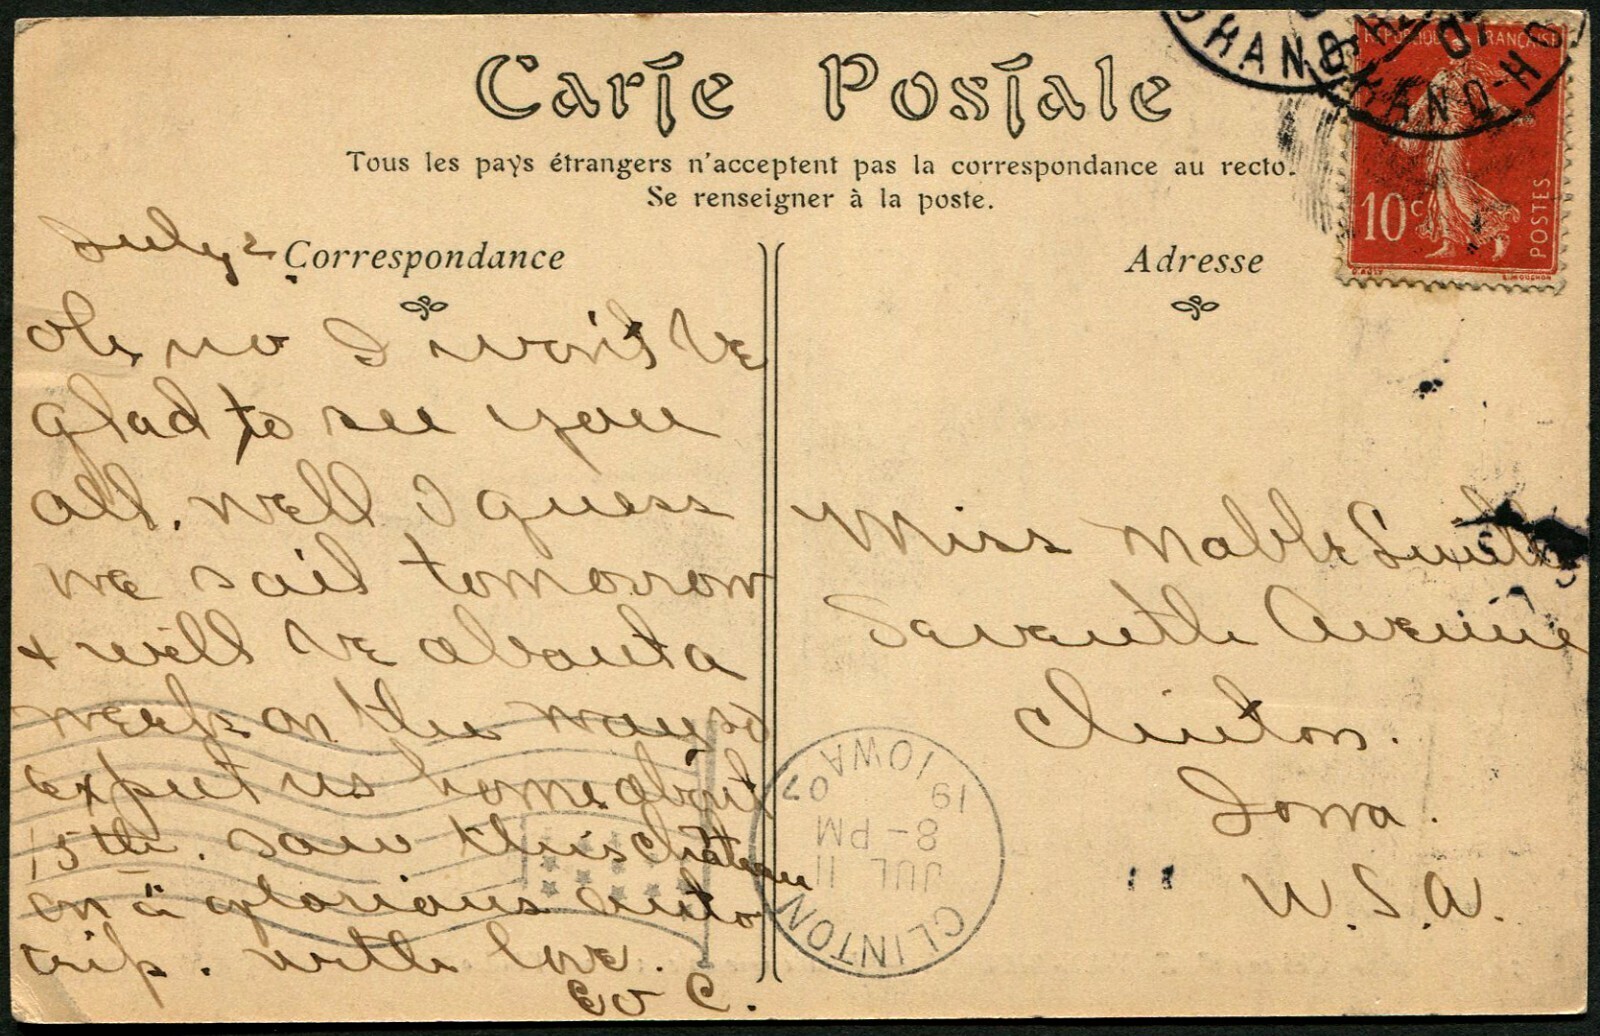 Carte Postale
Tous les pays étrangers n'acceptent pas la correspondance au recto.
Se renseigner à la poste.
RÉPUBLIQUE FRANÇAISE
10c
POSTES
HAND
HAND-H
07
Correspondance
July 2
Oh no I won't be
glad to see you
all. Well I guess
we sail tomorrow
+ will be about a
week on the way so
expect us home about
15th. Saw this chateau
on a glorious auto
trip. With love.
C.
Adresse
Miss Mable Smith
Seventh Avenue
Clinton.
Iowa.
U.S.A.
CLINTON
JUL 11
8-PM
19 07
IOWA